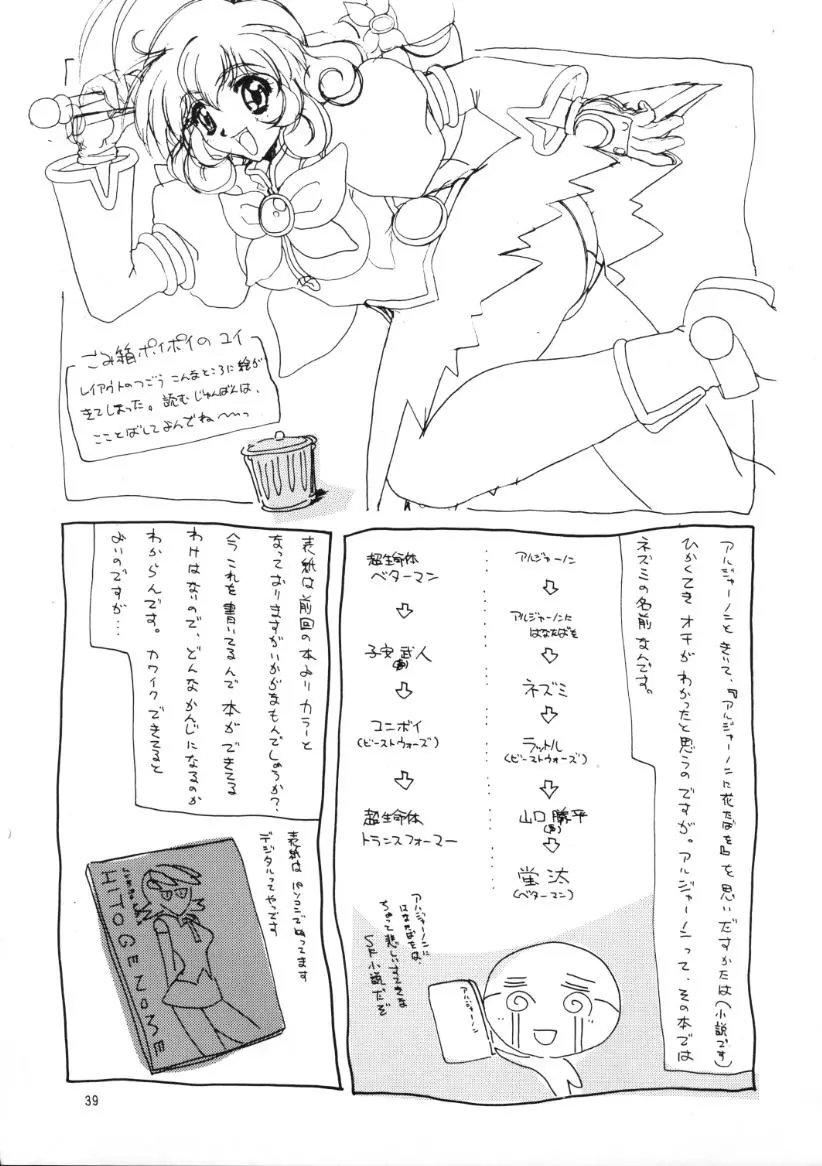 ごみ箱ポイポイのユイ
レイアウトのつごう こんなところに絵が
きてしまった。読むじゅんばんは、
こことばしてよんでね〜っ
アルジャーノンときいて、『アルジャーノンに花たばを』を思いだすかたは(小説です)
ひかくてき オチが わかったと思うのですが。アルジャーノンって、その本では
ネズミの名前なんです。
アルジャーノン
⇩
アルジャーノンに
はなたばを
⇩
ネズミ
⇩
ラットル
(ビーストウォーズ)
⇩
山口 勝平
(声)
⇩
蛍汰
(ベターマン)
超生命体
ベターマン
⇩
子安 武人
(声)
⇩
コニボイ
(ビーストウォーズ)
⇩
超生命体
トランスフォーマー
アルジャーノンに
はなたばをは、
ちょっと悲しいすてきな
SF小説だぞ
アルジャーノン
表紙は前回の本よりカラーと
なっておりますがいかがなもんでしょろか?
今これを書いてるんで本ができてる
わけはないので、どんなかんじになるのか
わからんです。カワイクできてると
よいのですが…
表紙は パソコンでぬってます
デジタルってやつです
HITOGENOME
39